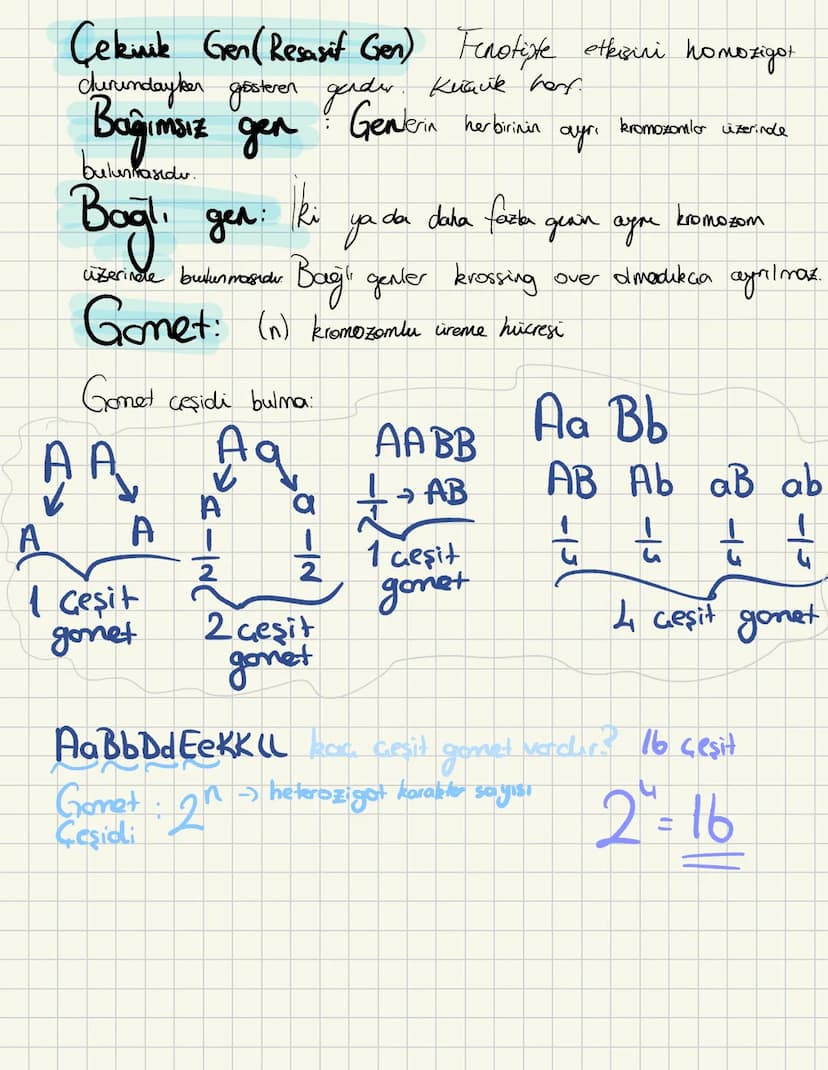 Çekinik Gen (Resasif Gen) Fenotipte etkisini homozigot
durumdayken gösteren gendir. Küçük harf.
Bağımsız gen : Genlerin herbirinin ayrı kromozomlar üzerinde
bulunmasıdır.
Bağlı gen: İki ya da daha fazla genin aynı kromozom
üzerinde bulunmasıdır. Bağlı genler krossing over olmadıkça ayrılmaz.
Gamet: (n) kromozomlu üreme hücresi
Gamet çeşidi bulma:
A A
A A
1 çeşit
gamet
A a
A a
1/2 1/2
2 çeşit
gamet
AABB
1/1 → AB
1 çeşit
gamet
Aa Bb
AB Ab aB ab
1/4 1/4 1/4 1/4
4 çeşit gamet
AaBbDdEeKKLL kaç çeşit gamet vardır? 16 çeşit
Gamet Çeşidi : 2ⁿ → heterozigot karakter sayısı
2⁴ = 16